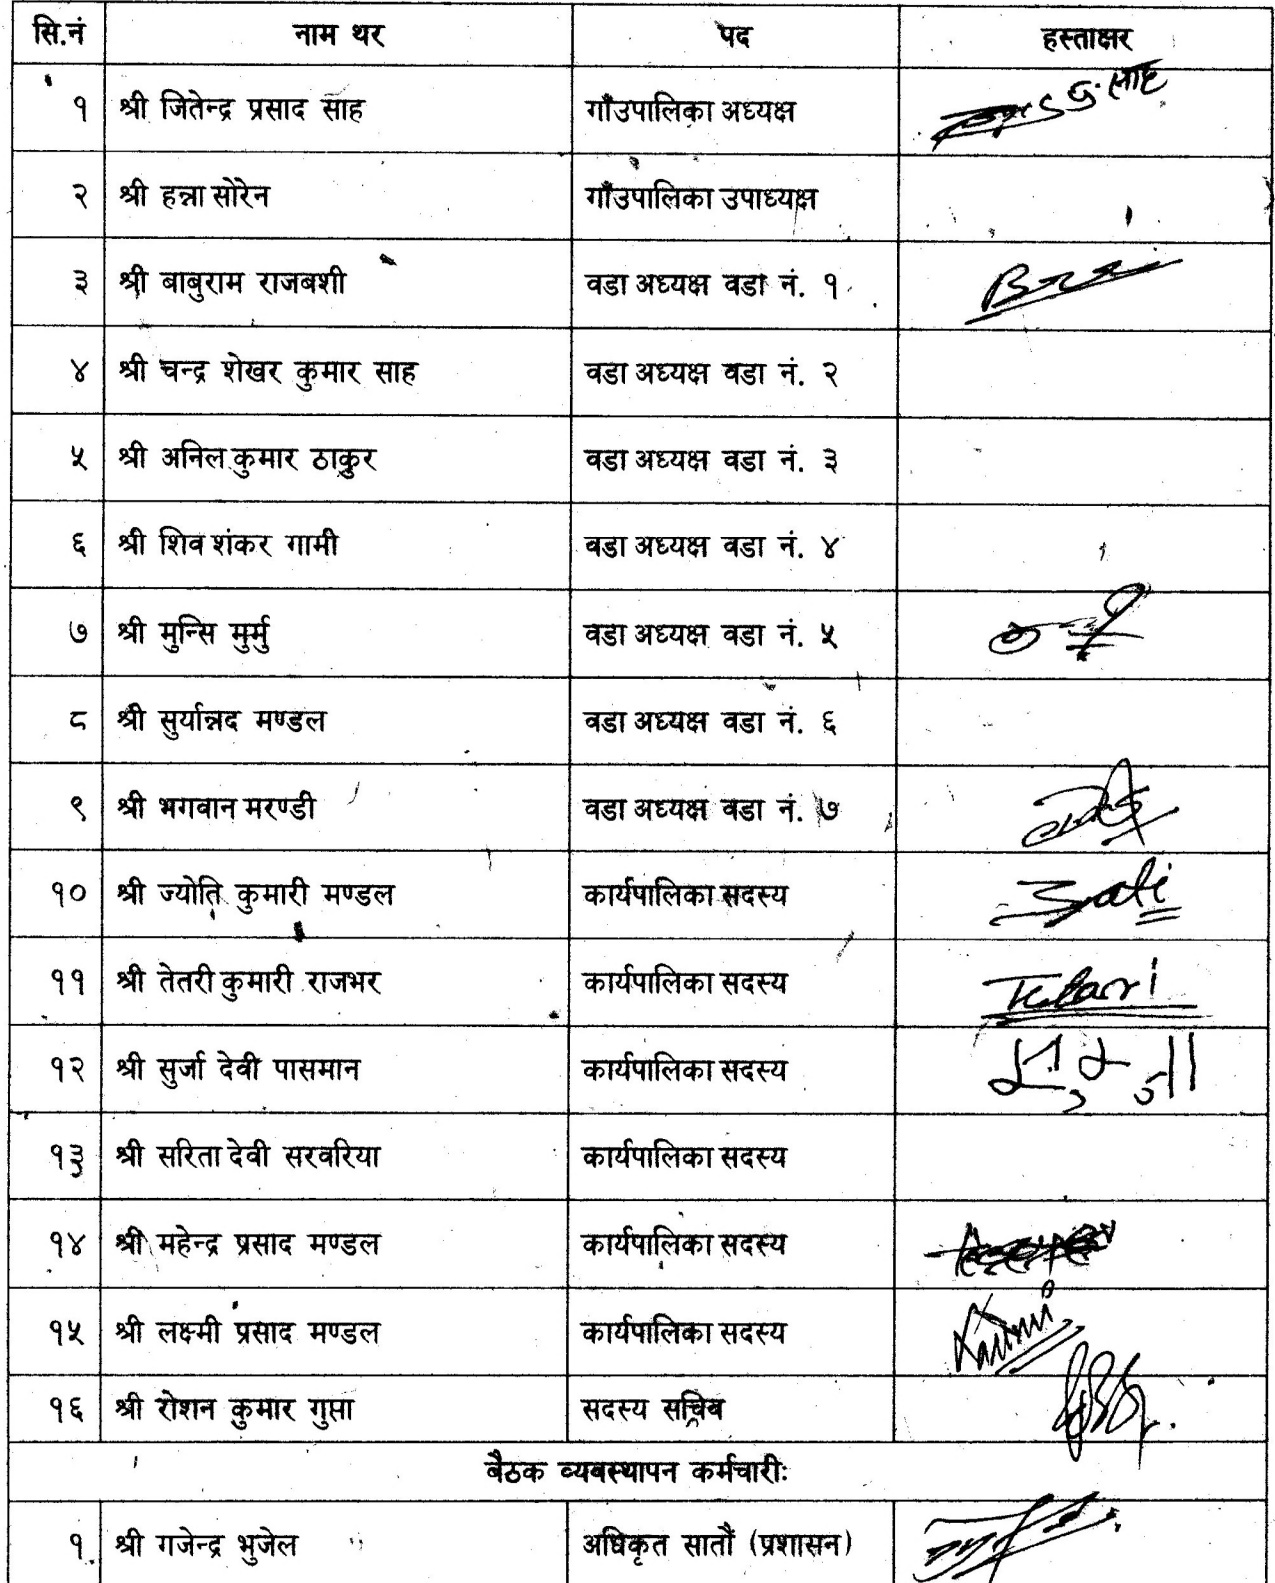 सि.नं नाम थर पद हस्ताक्षर
१ श्री जितेन्द्र प्रसाद साह गाँउपालिका अध्यक्ष
२ श्री हन्ना सोरेन गाँउपालिका उपाध्यक्ष
३ श्री बाबुराम राजबशी वडा अध्यक्ष वडा नं. १
४ श्री चन्द्र शेखर कुमार साह वडा अध्यक्ष वडा नं. २
५ श्री अनिल कुमार ठाकुर वडा अध्यक्ष वडा नं. ३
६ श्री शिव शंकर गामी वडा अध्यक्ष वडा नं. ४
७ श्री मुन्सि मुर्मु वडा अध्यक्ष वडा नं. ५
८ श्री सुर्यान्नद मण्डल वडा अध्यक्ष वडा नं. ६
९ श्री भगवान मरण्डी वडा अध्यक्ष वडा नं. ७
१० श्री ज्योति कुमारी मण्डल कार्यपालिका सदस्य
११ श्री तेतरी कुमारी राजभर कार्यपालिका सदस्य Tetari
१२ श्री सुर्जा देवी पासमान कार्यपालिका सदस्य
१३ श्री सरिता देवी सरवरिया कार्यपालिका सदस्य
१४ श्री महेन्द्र प्रसाद मण्डल कार्यपालिका सदस्य
१५ श्री लक्ष्मी प्रसाद मण्डल कार्यपालिका सदस्य
१६ श्री रोशन कुमार गुप्ता सदस्य सचिव
बैठक व्यवस्थापन कर्मचारीः
१. श्री गजेन्द्र भुजेल अधिकृत सातौं (प्रशासन)